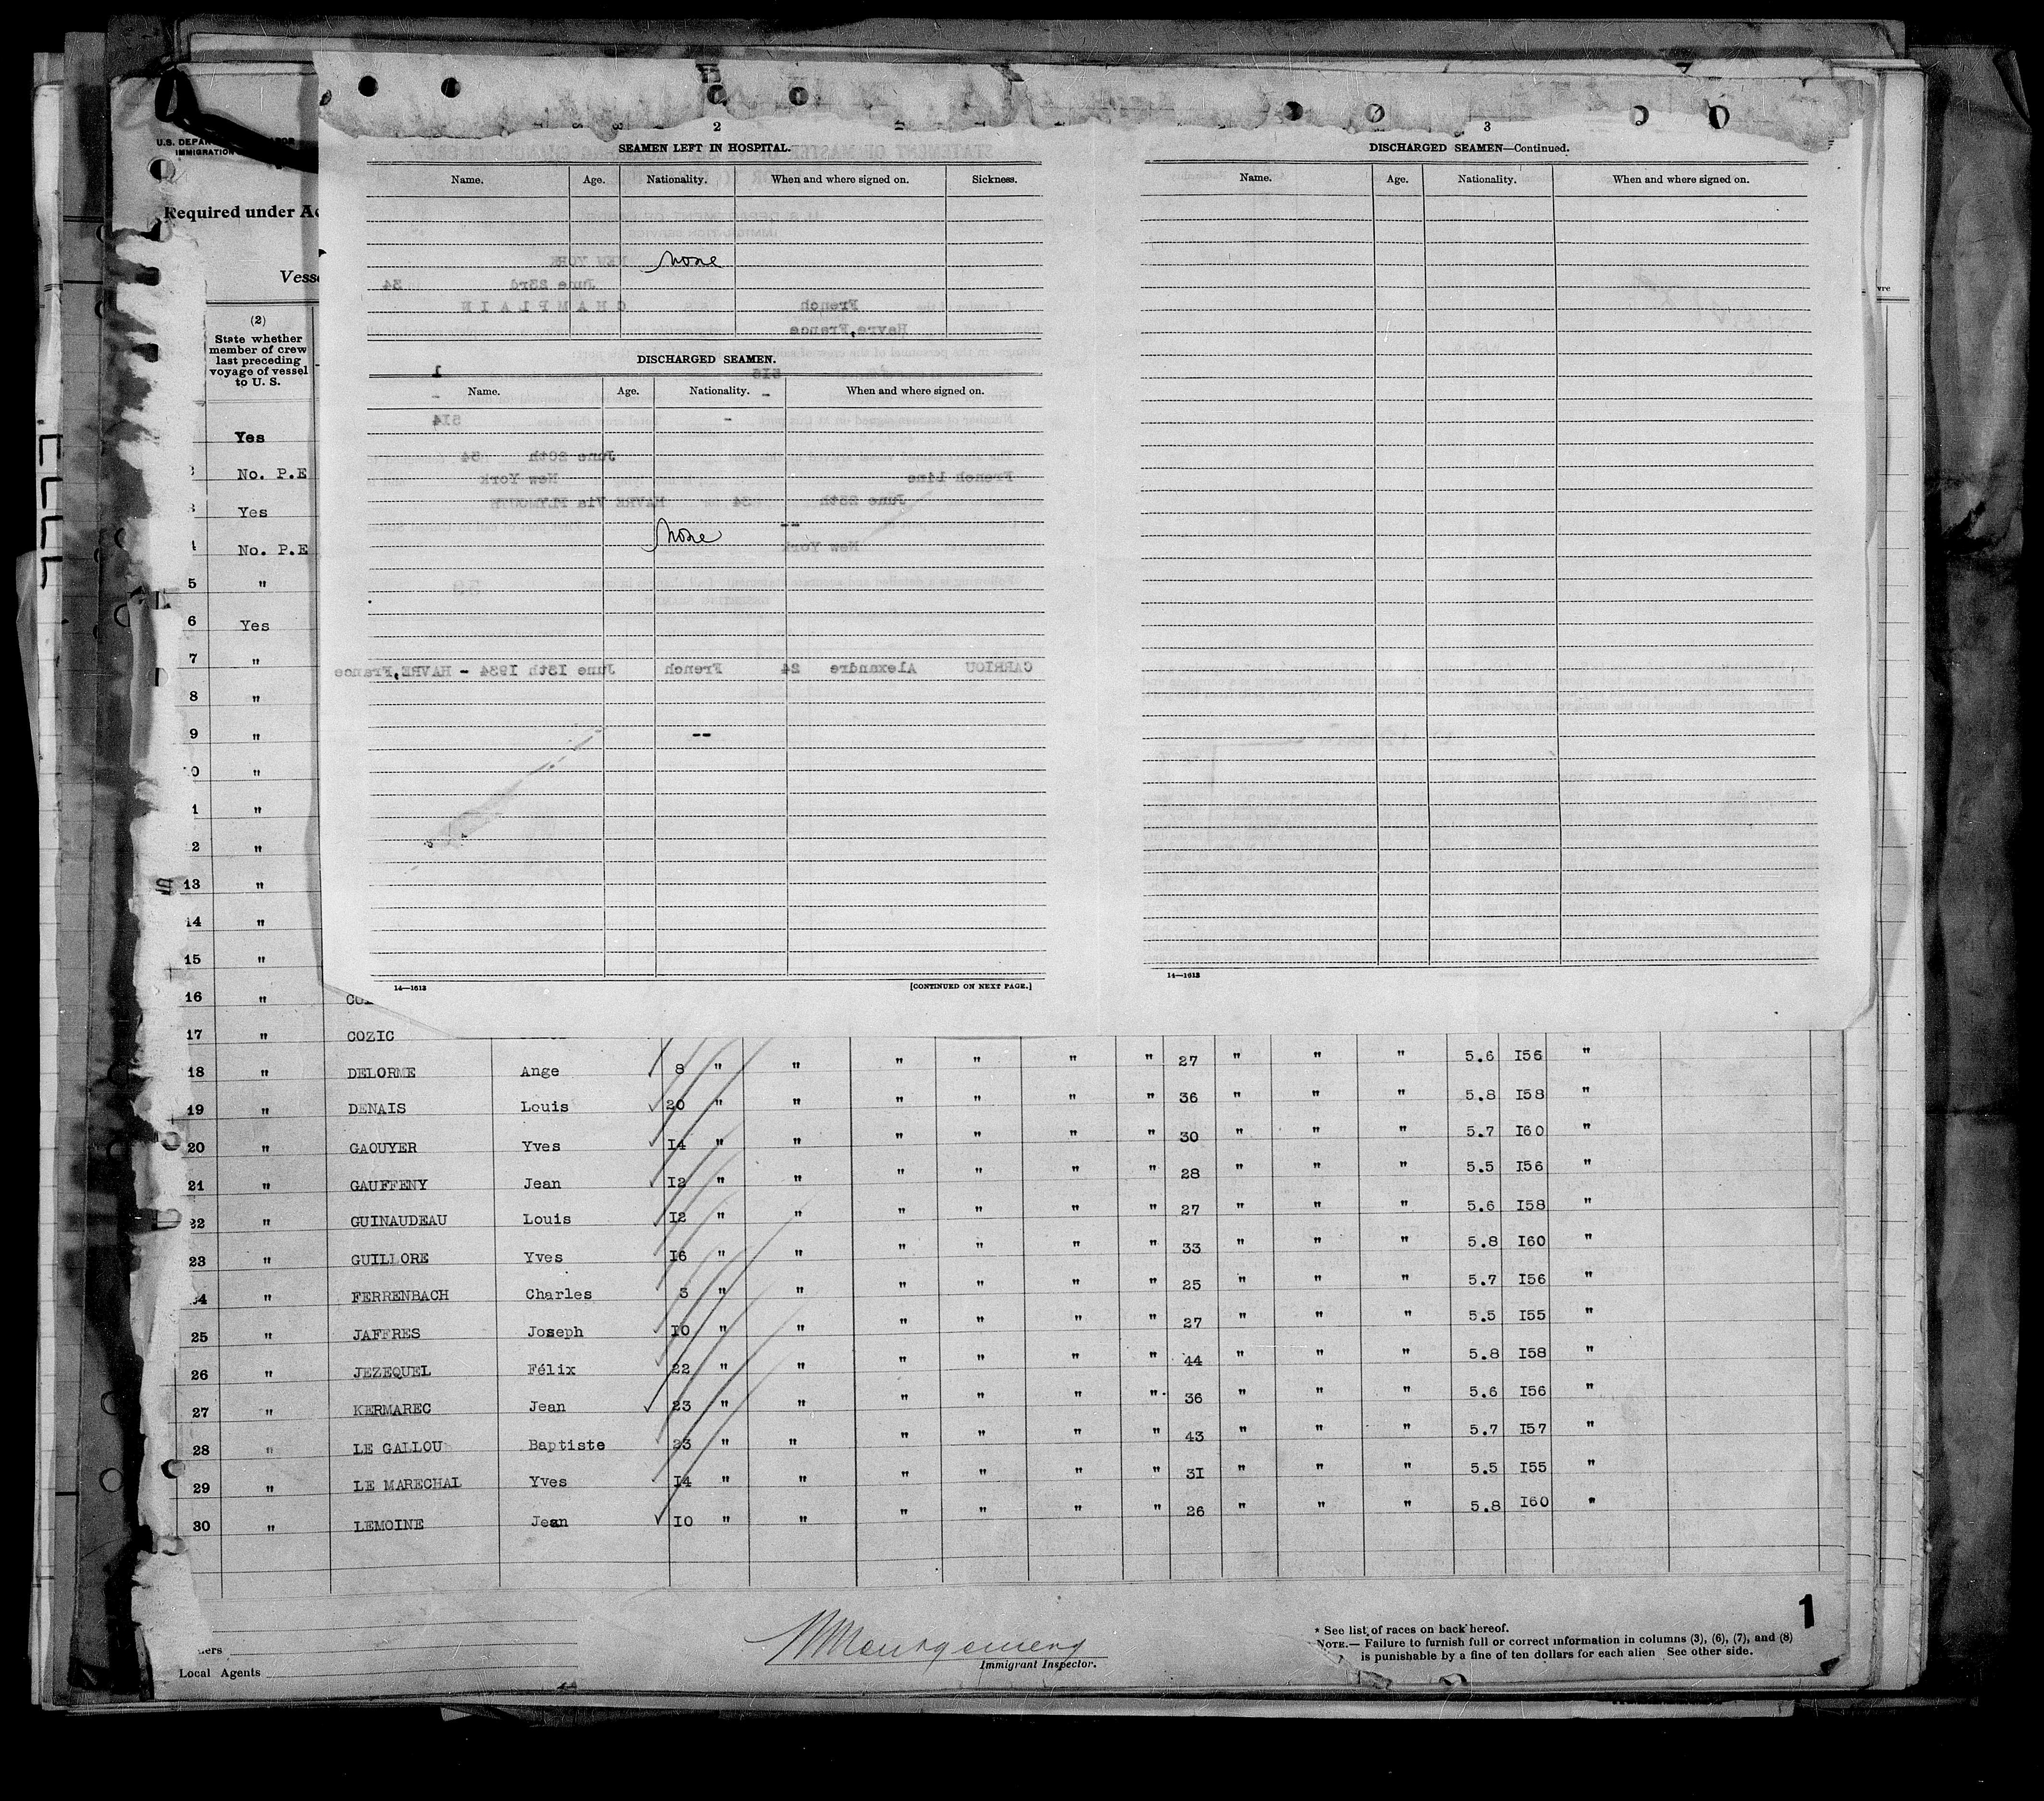 U.S. DEPAR
IMMIGRATION
Required under Ac
Vesse
(2)
State whether
member of crew
last preceding
voyage of vessel
to U. S.
2
SEAMEN LEFT IN HOSPITAL.
Name. Age. Nationality. When and where signed on. Sickness.
none
DISCHARGED SEAMEN.
Name. Age. Nationality. When and where signed on.
none
--
14—1613 [CONTINUED ON NEXT PAGE.]
3
DISCHARGED SEAMEN—Continued.
Name. Age. Nationality. When and where signed on.
14—1613
NEW YORK
June 23rd 34
French CHAMPLAIN
Havre,France
516 1
514
June 20th 34
French Line New York
June 23th 34 HAVRE Via PLYMOUTH
New York
CARRIOU Alexandre 24 French June 13th 1934 - HAVRE,France
Yes
No. P.E
Yes
No. P.E
5 "
6 Yes
7 "
8 "
9 "
0 "
1 "
2 "
13 "
14 "
15 "
16 "
17 " COZIC
18 " DELORME Ange 8 " " " " " " 27 " " " 5.6 I56 "
19 " DENAIS Louis 20 " " " " " " 36 " " " 5.8 I58 "
20 " GAOUYER Yves I4 " " " " " " 30 " " " 5.7 I60 "
21 " GAUFFENY Jean I2 " " " " " " 28 " " " 5.5 I56 "
22 " GUINAUDEAU Louis I2 " " " " " " 27 " " " 5.6 I58 "
23 " GUILLORE Yves I6 " " " " " " 33 " " " 5.8 I60 "
24 " FERRENBACH Charles 3 " " " " " " 25 " " " 5.7 I56 "
25 " JAFFRES Joseph I0 " " " " " " 27 " " " 5.5 I55 "
26 " JEZEQUEL Félix 22 " " " " " " 44 " " " 5.8 I58 "
27 " KERMAREC Jean 23 " " " " " " 36 " " " 5.6 I56 "
28 " LE GALLOU Baptiste 23 " " " " " " 43 " " " 5.7 I57 "
29 " LE MARECHAL Yves I4 " " " " " " 3I " " " 5.5 I55 "
30 " LEMOINE Jean I0 " " " " " " 26 " " " 5.8 I60 "
Local Agents
Montgomery
Immigrant Inspector.
* See list of races on back hereof.
NOTE.— Failure to furnish full or correct information in columns (3), (6), (7), and (8)
is punishable by a fine of ten dollars for each alien See other side.
1